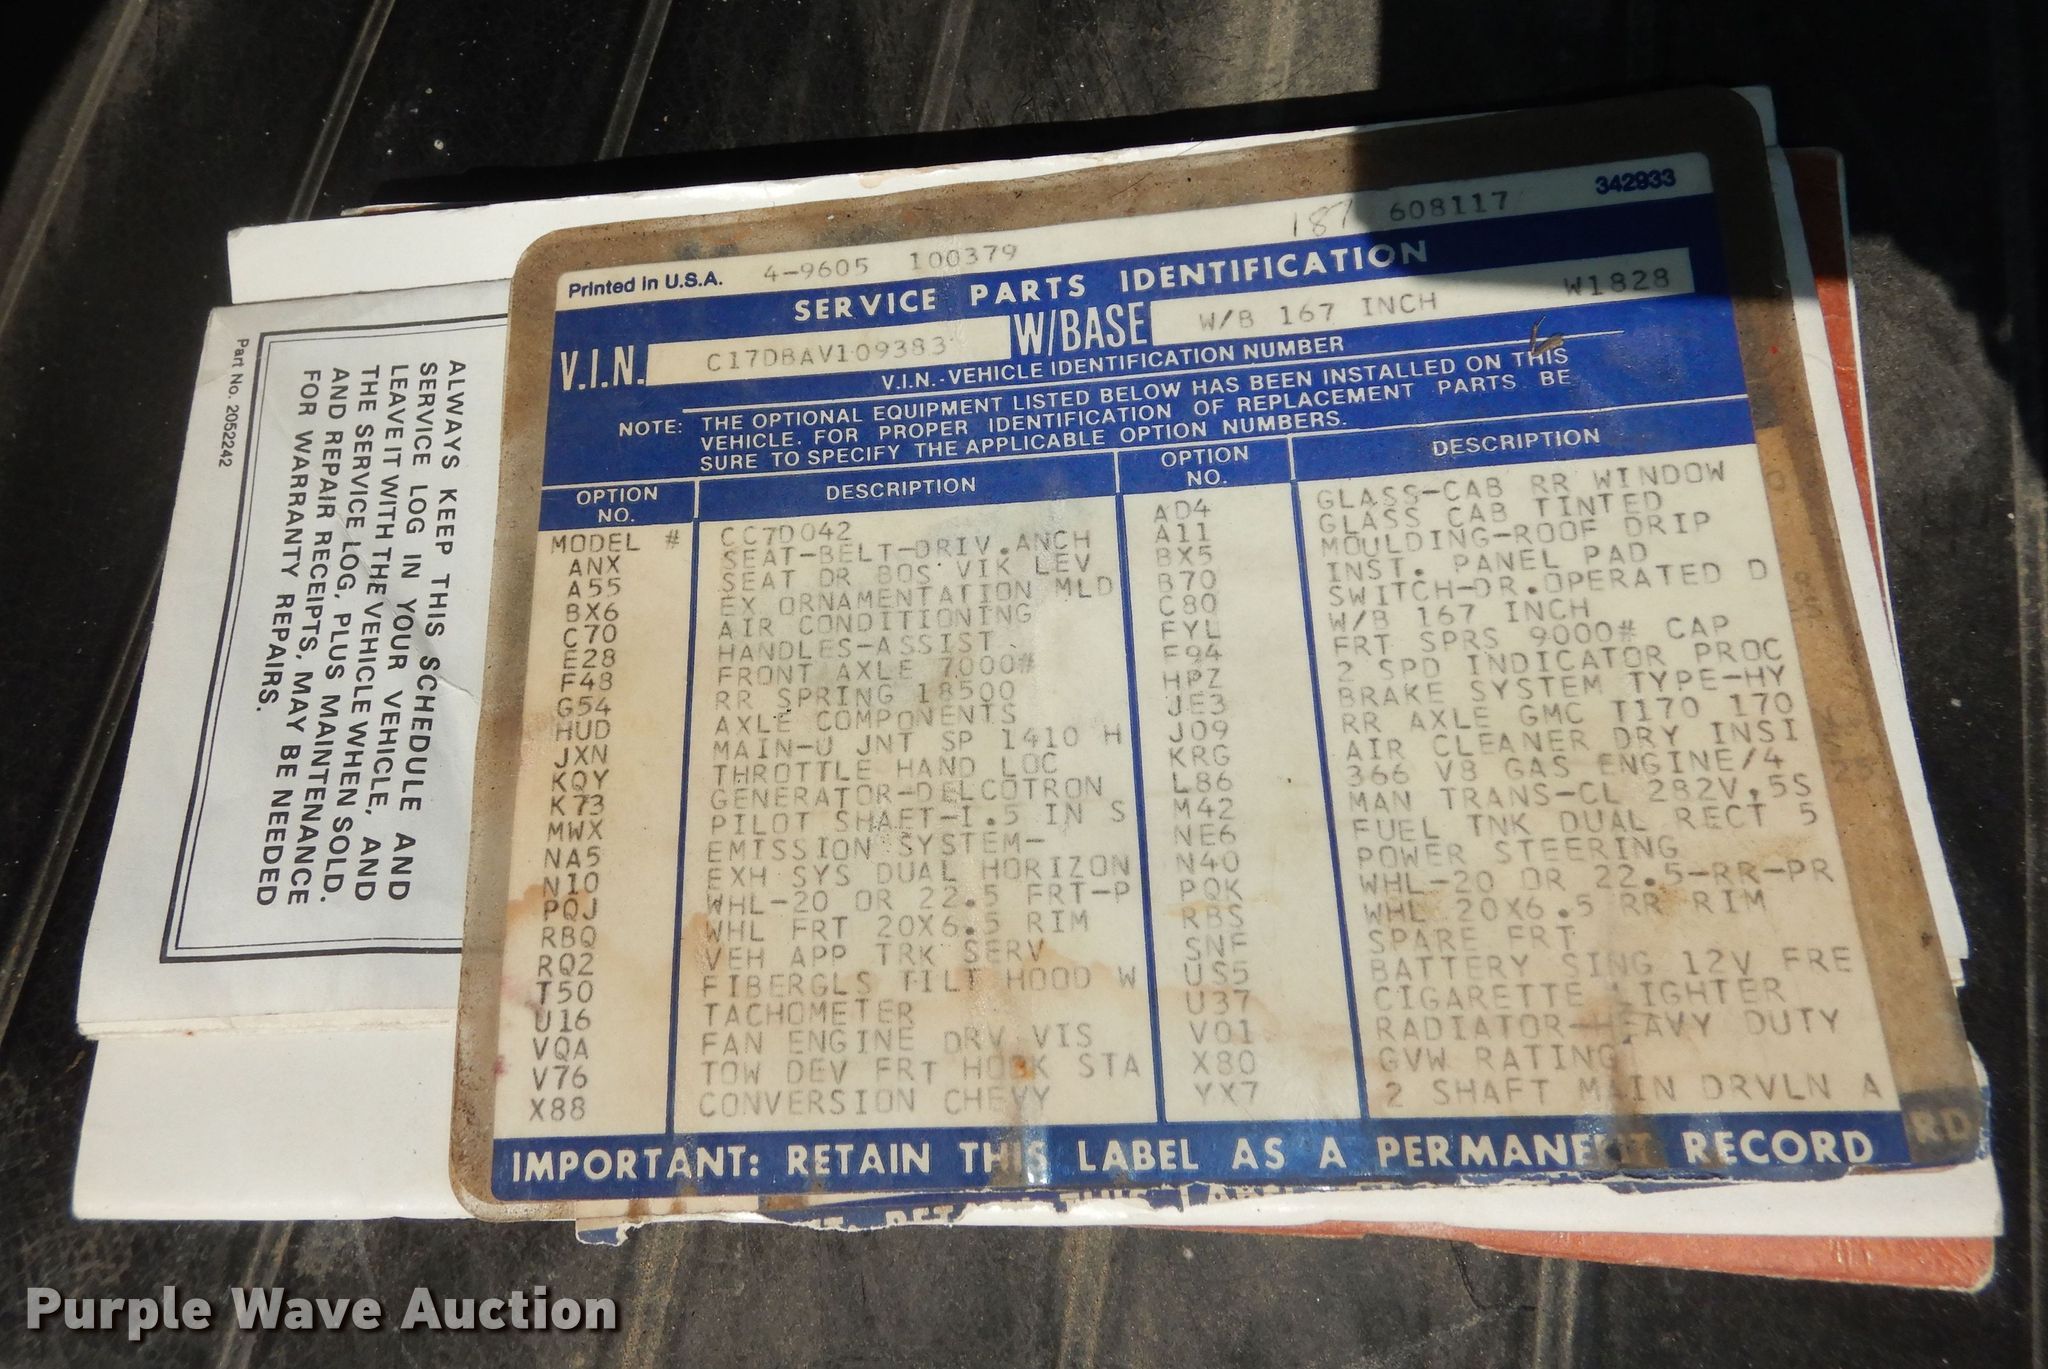 342933
Printed in U.S.A. 4-9605 100379 187 608117
SERVICE PARTS IDENTIFICATION
V.I.N. C17DBAV109383 W/BASE W/B 167 INCH W1828
V.I.N.-VEHICLE IDENTIFICATION NUMBER
NOTE: THE OPTIONAL EQUIPMENT LISTED BELOW HAS BEEN INSTALLED ON THIS
VEHICLE. FOR PROPER IDENTIFICATION OF REPLACEMENT PARTS BE
SURE TO SPECIFY THE APPLICABLE OPTION NUMBERS.
OPTION NO. DESCRIPTION
MODEL # CC7D042
ANX SEAT-BELT-DRIV.ANCH
A55 SEAT DR BOS VIK LEV
BX6 EX ORNAMENTATION MLD
C70 AIR CONDITIONING
E28 HANDLES-ASSIST
F48 FRONT AXLE 7000#
G54 RR SPRING 18500
HUD AXLE COMPONENTS
JXN MAIN-U JNT SP 1410 H
KQY THROTTLE HAND LOC
K73 GENERATOR-DELCOTRON
MWX PILOT SHAFT-1.5 IN S
NA5 EMISSION SYSTEM-
N10 EXH SYS DUAL HORIZON
PQJ WHL-20 OR 22.5 FRT-P
RBQ WHL FRT 20X6.5 RIM
RQ2 VEH APP TRK SERV
T50 FIBERGLS TILT HOOD W
U16 TACHOMETER
VQA FAN ENGINE DRV VIS
V76 TOW DEV FRT HOOK STA
X88 CONVERSION CHEVY
OPTION NO. DESCRIPTION
AD4 GLASS-CAB RR WINDOW
A11 GLASS CAB TINTED
BX5 MOULDING-ROOF DRIP
B70 INST. PANEL PAD
C80 SWITCH-DR.OPERATED D
FYL W/B 167 INCH
F94 FRT SPRS 9000# CAP
HPZ 2 SPD INDICATOR PROC
JE3 BRAKE SYSTEM TYPE-HY
J09 RR AXLE GMC T170 170
KRG AIR CLEANER DRY INSI
L86 366 V8 GAS ENGINE/4
M42 MAN TRANS-CL 282V,5S
NE6 FUEL TNK DUAL RECT 5
N40 POWER STEERING
PQK WHL-20 OR 22.5-RR-PR
RBS WHL 20X6.5 RR RIM
SNF SPARE FRT
US5 BATTERY SING 12V FRE
U37 CIGARETTE LIGHTER
V01 RADIATOR-HEAVY DUTY
X80 GVW RATING
YX7 2 SHAFT MAIN DRVLN A
IMPORTANT: RETAIN THIS LABEL AS A PERMANENT RECORD
RD
ALWAYS KEEP THIS SCHEDULE AND
SERVICE LOG IN YOUR VEHICLE AND
LEAVE IT WITH THE VEHICLE WHEN SOLD.
THE SERVICE LOG, PLUS MAINTENANCE
AND REPAIR RECEIPTS, MAY BE NEEDED
FOR WARRANTY REPAIRS.
Part No. 2052242
Purple Wave Auction